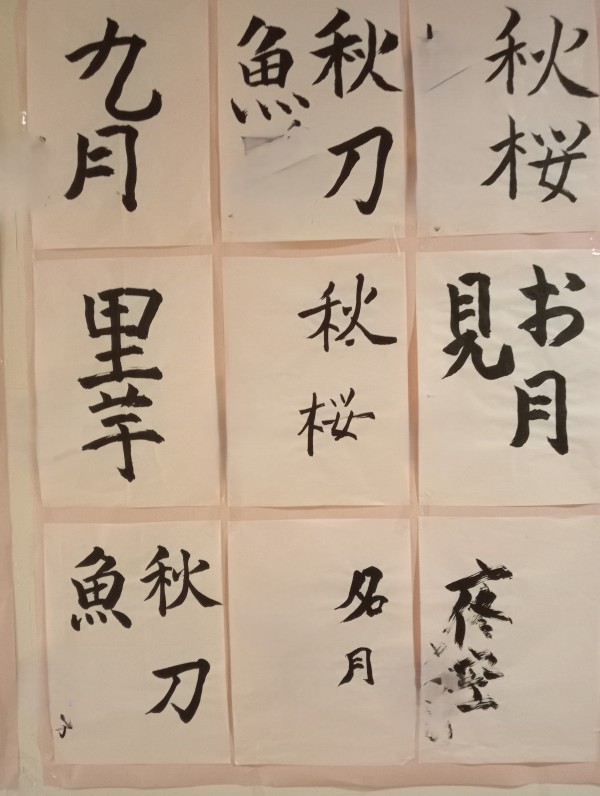 九月
秋刀
魚
秋桜
里芋
秋桜
お月
見
秋刀
魚
名月
夜空